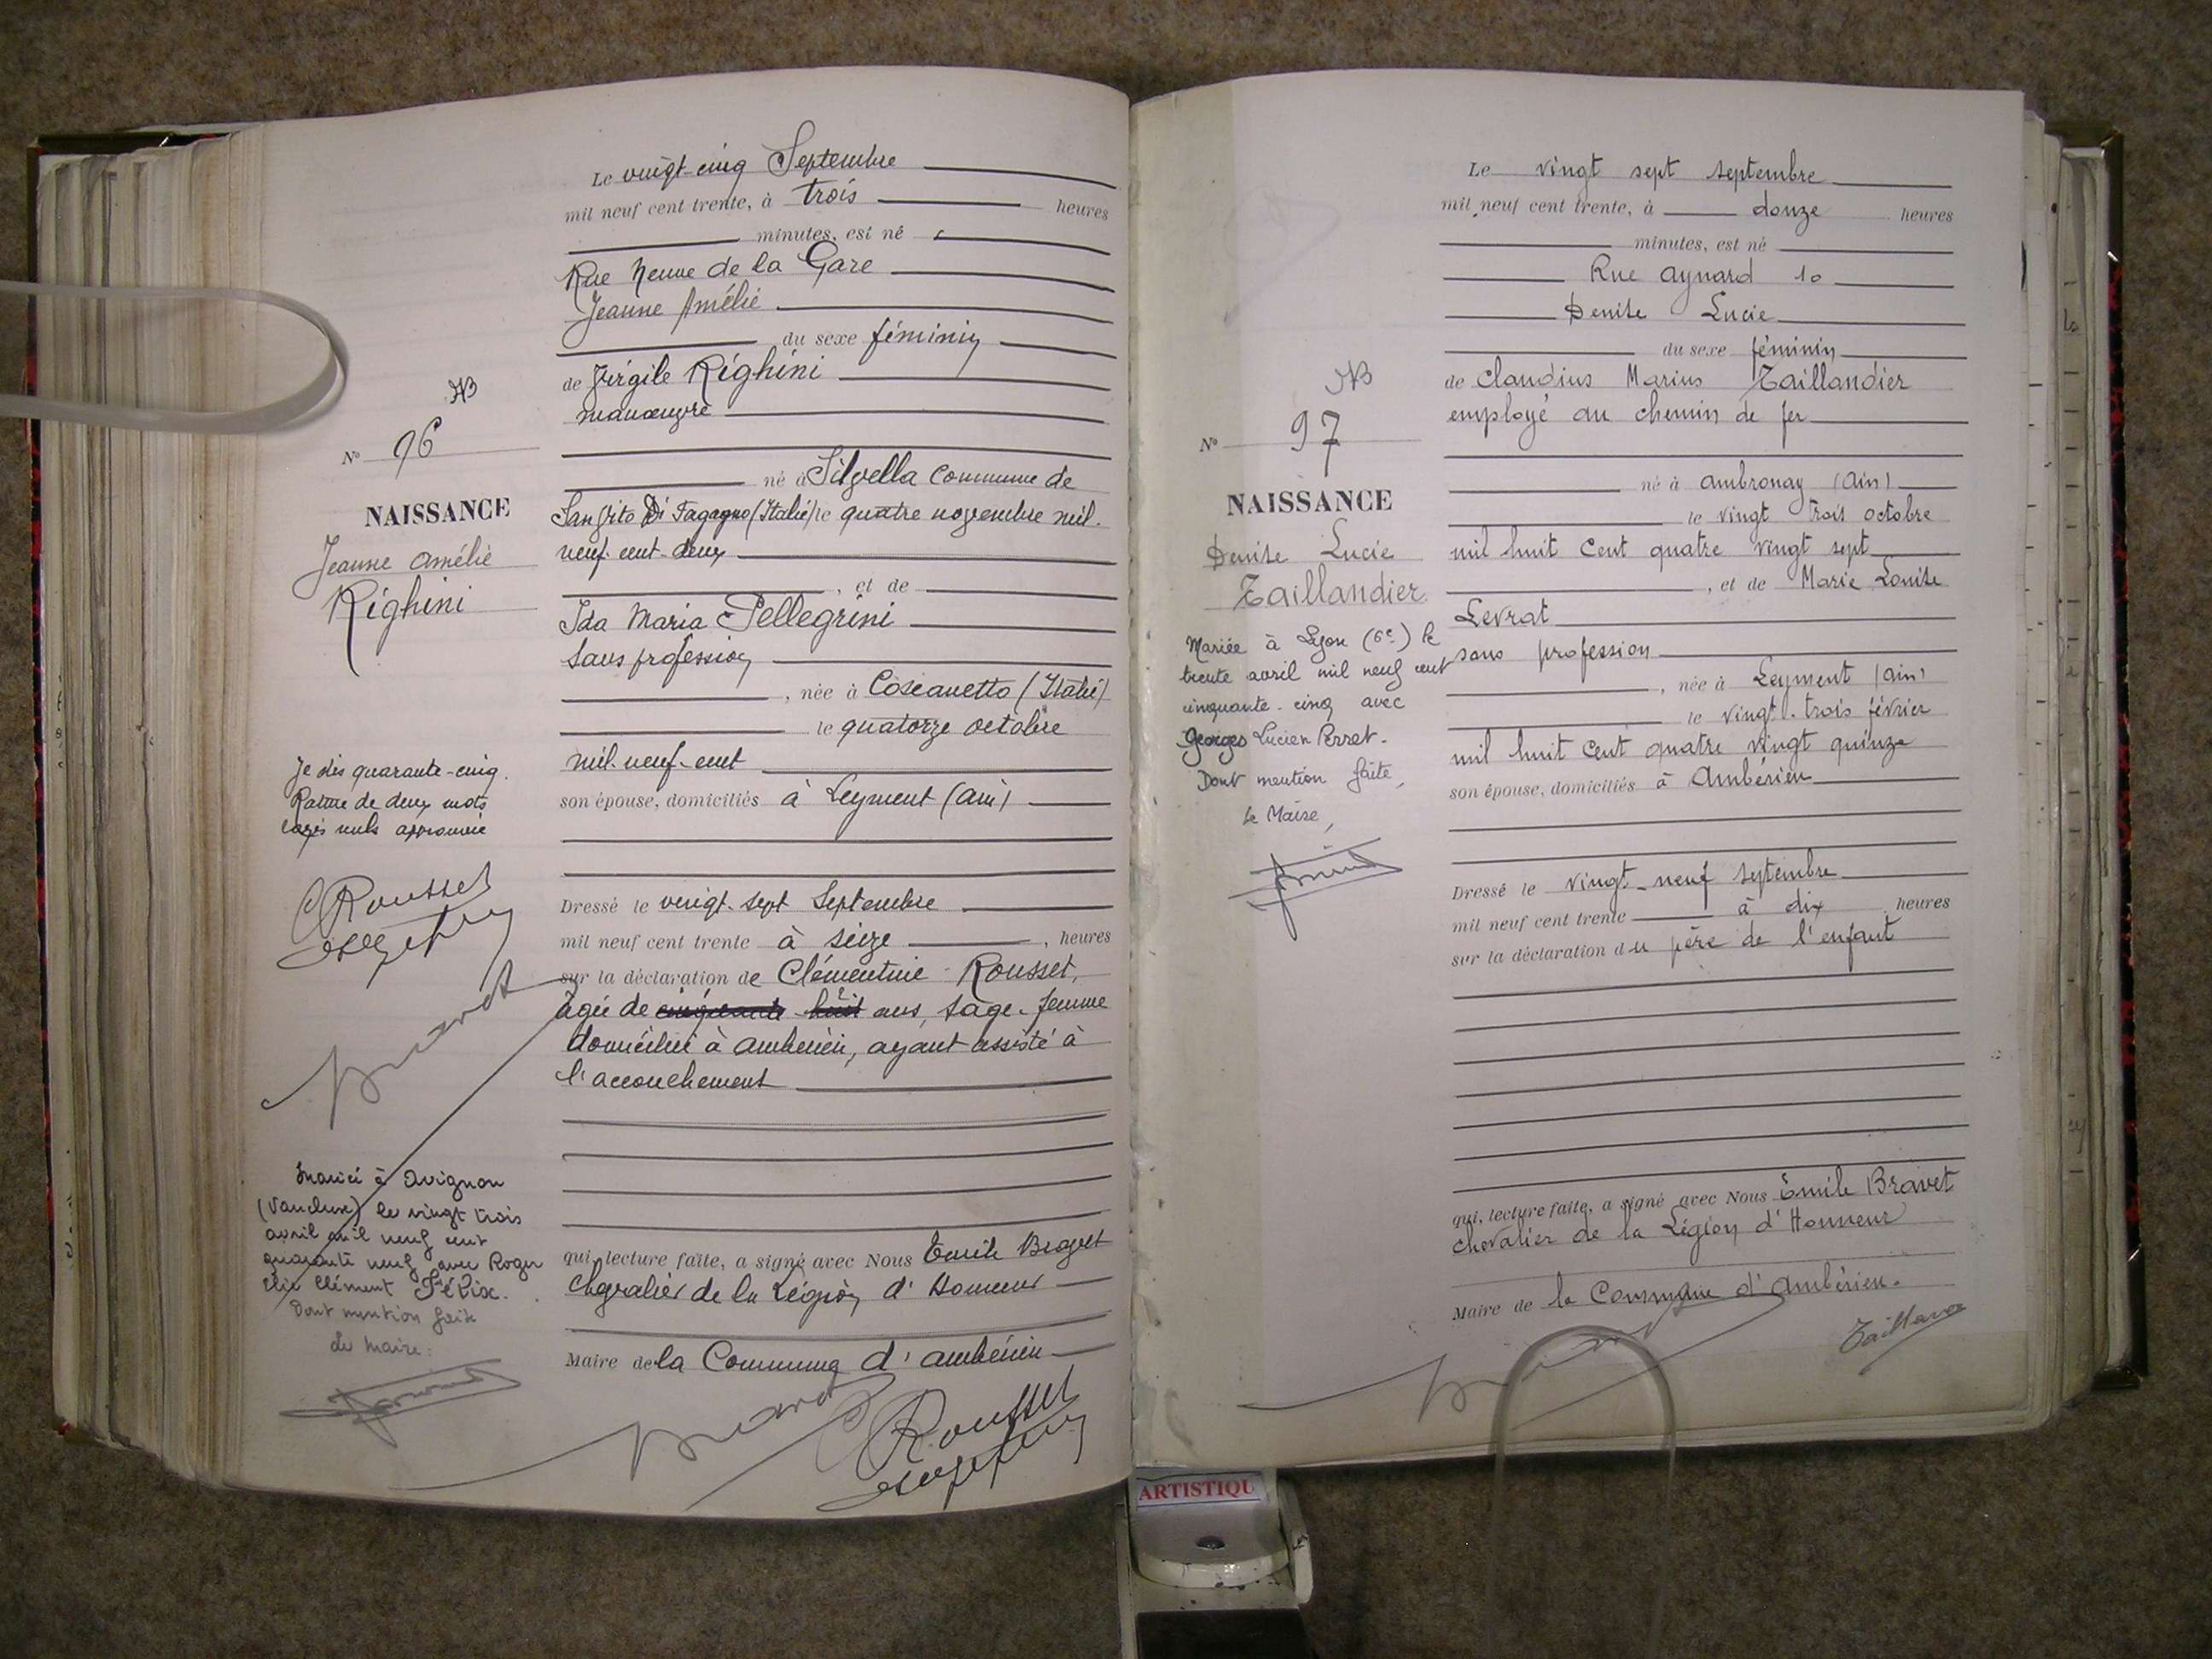 Le vingt-cinq Septembre
mil neuf cent trente, à trois heures
minutes, est né
Rue Neuve de la Gare
Jeanne Amélie
du sexe féminin
de Virgile Righini
manœuvre
né à Silvella Commune de
San Vito Di Fagagno (Italie) le quatre novembre mil-
neuf-cent-deux
, et de
Ida Maria Pellegrini
sans profession
, née à Coseanetto (Italie)
le quatorze octobre
mil-neuf-cent
son épouse, domiciliés à Leyment (Ain)
Dressé le vingt-sept Septembre
mil neuf cent trente à seize , heures
sur la déclaration de Clémentine Rousset,
âgée de cinquante huit ans, sage-femme
domiciliée à Ambérieu, ayant assisté à
l'accouchement
qui, lecture faite, a signé avec Nous Emile Bravet
Chevalier de la Légion d'Honneur
Maire de la Commune d'Ambérieu
C Rousset
NB
N° 96
NAISSANCE
Jeanne Amélie
Righini
Je dis quarante-cinq.
Rature de deux mots
rayés nuls approuvée
C Rousset
Bravet
Mariée à Avignon
(Vaucluse) le vingt trois
avril mil neuf cent
quarante neuf avec Roger
Elie Clément Félix.
Dont mention faite
Le Maire:
Le vingt sept septembre
mil neuf cent trente, à douze heures
minutes, est né
Rue Aynard 10
Denise Lucie
du sexe féminin
de Claudius Marius Taillandier
employé au chemin de fer
né à Ambronay (Ain)
le vingt trois octobre
mil huit cent quatre vingt sept
, et de Marie Louise
Levrat
sans profession
, née à Leyment (Ain)
le vingt-trois février
mil huit cent quatre vingt quinze
son épouse, domiciliés à Ambérieu
Dressé le vingt-neuf septembre
mil neuf cent trente à dix heures
sur la déclaration du père de l'enfant
qui, lecture faite, a signé avec Nous Emile Bravet
chevalier de la Légion d'Honneur
Maire de la Commune d'Ambérieu.
NB
N° 97
NAISSANCE
Denise Lucie
Taillandier
Mariée à Lyon (6e) le
trente avril mil neuf cent
cinquante-cinq avec
Georges Lucien Perret.
Dont mention faite,
Le Maire,
ARTISTIQU